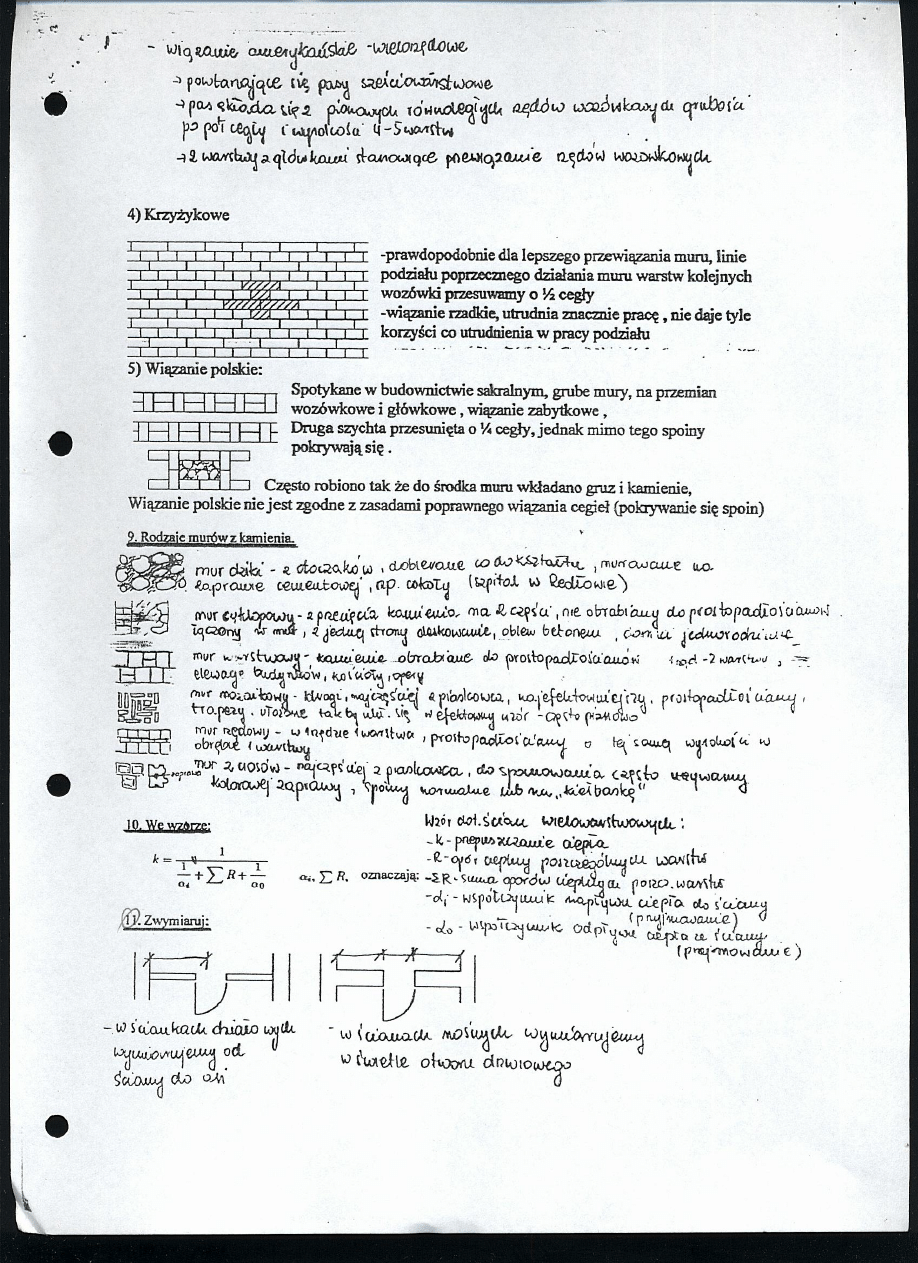 - wiązanie amerykańskie - wielorzędowe
→ powtarzające się pasy sześciowarstwowe
→ pas składa się z pionowych równoległych rzędów wozówkowych grubości
po pół cegły i wysokości 4-5 warstw
→ 2 warstwy z główkami stanowiące przewiązanie rzędów wozówkowych
4) Krzyżykowe
-prawdopodobnie dla lepszego przewiązania muru, linie
podziału poprzecznego działania muru warstw kolejnych
wozówki przesuwamy o ½ cegły
-wiązanie rzadkie, utrudnia znacznie pracę , nie daje tyle
korzyści co utrudnienia w pracy podziału
5) Wiązanie polskie:
Spotykane w budownictwie sakralnym, grube mury, na przemian
wozówkowe i główkowe , wiązanie zabytkowe ,
Druga szychta przesunięta o ¼ cegły, jednak mimo tego spoiny
pokrywają się .
Często robiono tak że do środka muru wkładano gruz i kamienie,
Wiązanie polskie nie jest zgodne z zasadami poprawnego wiązania cegieł (pokrywanie się spoin)
9. Rodzaje murów z kamienia.
mur dziki - z otoczaków , dobierane co do kształtu , murowane na
zaprawie cementowej , np. cokoły (szpital w Redłowie)
mur cyklopowy - z przecięcia kamienia na 2 części , nie obrabiany do prostopadłościanów
łączony w mur , z jednej strony deskowanie, oblew betonem ,
mur warstwowy - kamienie obrabiane do prostopadłościanów 1 rząd - 2 warstwy ,
elewacje budynków, kościoły, opery
mur mozaikowy - długi, najczęściej z piaskowca, najefektowniejszy, prostopadłościany,
trapezy. ułożone tak by się w efektowny wzór - często pionowo
mur rzędowy - w 1 rzędzie 1 warstwa , prostopadłościany o tej samej wysokości w
obrębie 1 warstwy
mur z ciosów - najczęściej z piaskowca, do spoinowania często używamy
zaprawa
kolorowej zaprawy , spoiny normalne lub na „kiełbaskę"
10. We wzorze:
k = 1 / (1/αi + ∑ R + 1/α0)
αi, ∑ R, oznaczają:
Wzór dot. ścian wielowarstwowych :
- k - przepuszczanie ciepła
- R - opór cieplny poszczególnych warstw
- ΣR - suma oporów cieplnych poszcz. warstw
- αi - współczynnik napływu ciepła do ściany
(przyjmowanie)
- αo - współczynnik odpływu ciepła ze ściany
(przejmowanie)
11. Zwymiaruj:
- w ściankach działowych
wymiarujemy od
ściany do osi
- w ścianach nośnych wymiarujemy
w świetle otworu drzwiowego